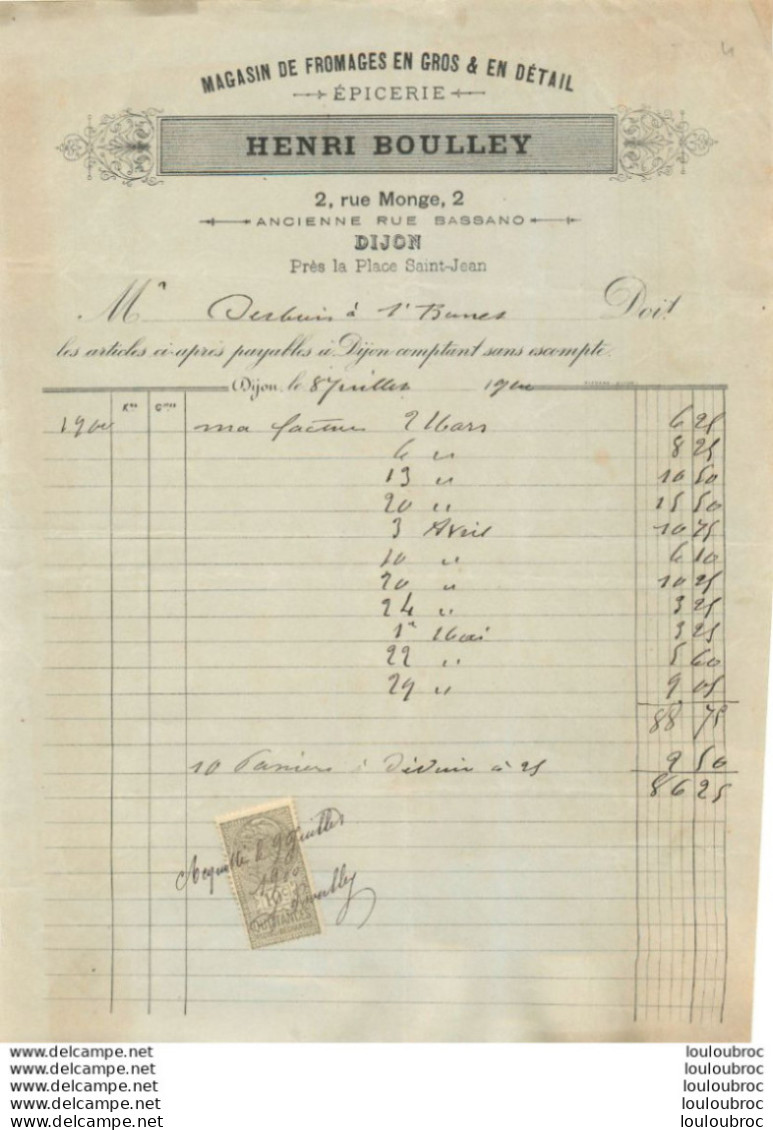 MAGASIN DE FROMAGES EN GROS & EN DÉTAIL
ÉPICERIE
HENRI BOULLEY
2, rue Monge, 2
ANCIENNE RUE BASSANO
DIJON
Près la Place Saint-Jean
Mr à Doit
les articles ci-après payables à Dijon comptant sans escompte.
Dijon, le 8 Juillet 1900
Kos Gmes
1900 ma facture 2 Mars 6 25
6 " 8 25
13 " 10 50
20 " 15 50
3 Avril 10 75
10 " 6 10
20 " 10 25
24 " 3 25
1er Mai 3 25
22 " 5 60
29 " 9 05
88 75
10 Paniers à Déduire à 25 2 50
86 25
Acquitté le 9 Juillet
1900
10c
Boulley
QUITTANCES
www.delcampe.net louloubroc
www.delcampe.net louloubroc
www.delcampe.net louloubroc
www.delcampe.net louloubroc
www.delcampe.net louloubroc